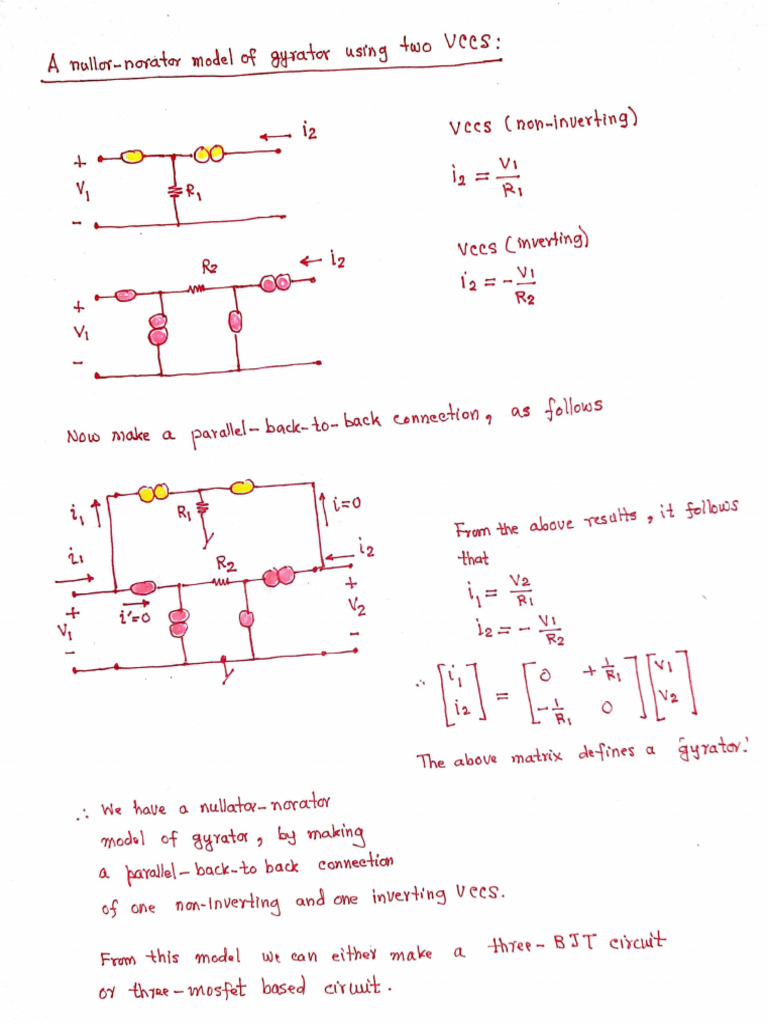 A nullor-norator model of gyrator using two VCCS:
i2
+
V1
R1
-
VCCS (non-inverting)
i2 = V1/R1
VCCS (inverting)
i2 = - V1/R2
R2
i2
+
V1
-
Now make a parallel-back-to-back connection, as follows
i1
R1
i=0
i1
R2
i2
+
V1
-
i'=0
+
V2
-
From the above results, it follows
that
i1 = V2/R1
i2 = - V1/R2
∴ [i1 i2] = [0 +1/R1 -1/R1 0] [V1 V2]
The above matrix defines a gyrator.'
∴ We have a nullator-norator
model of gyrator, by making
a parallel-back-to back connection
of one non-Inverting and one inverting VCCS.
From this model we can either make a three-BJT circuit
or three-mosfet based circuit.